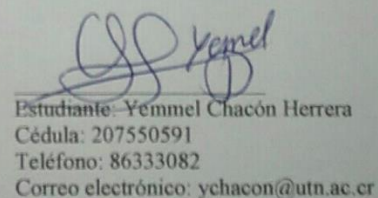 Yemel
Estudiante: Yemmel Chacón Herrera
Cédula: 207550591
Teléfono: 86333082
Correo electrónico: ychacon@utn.ac.cr